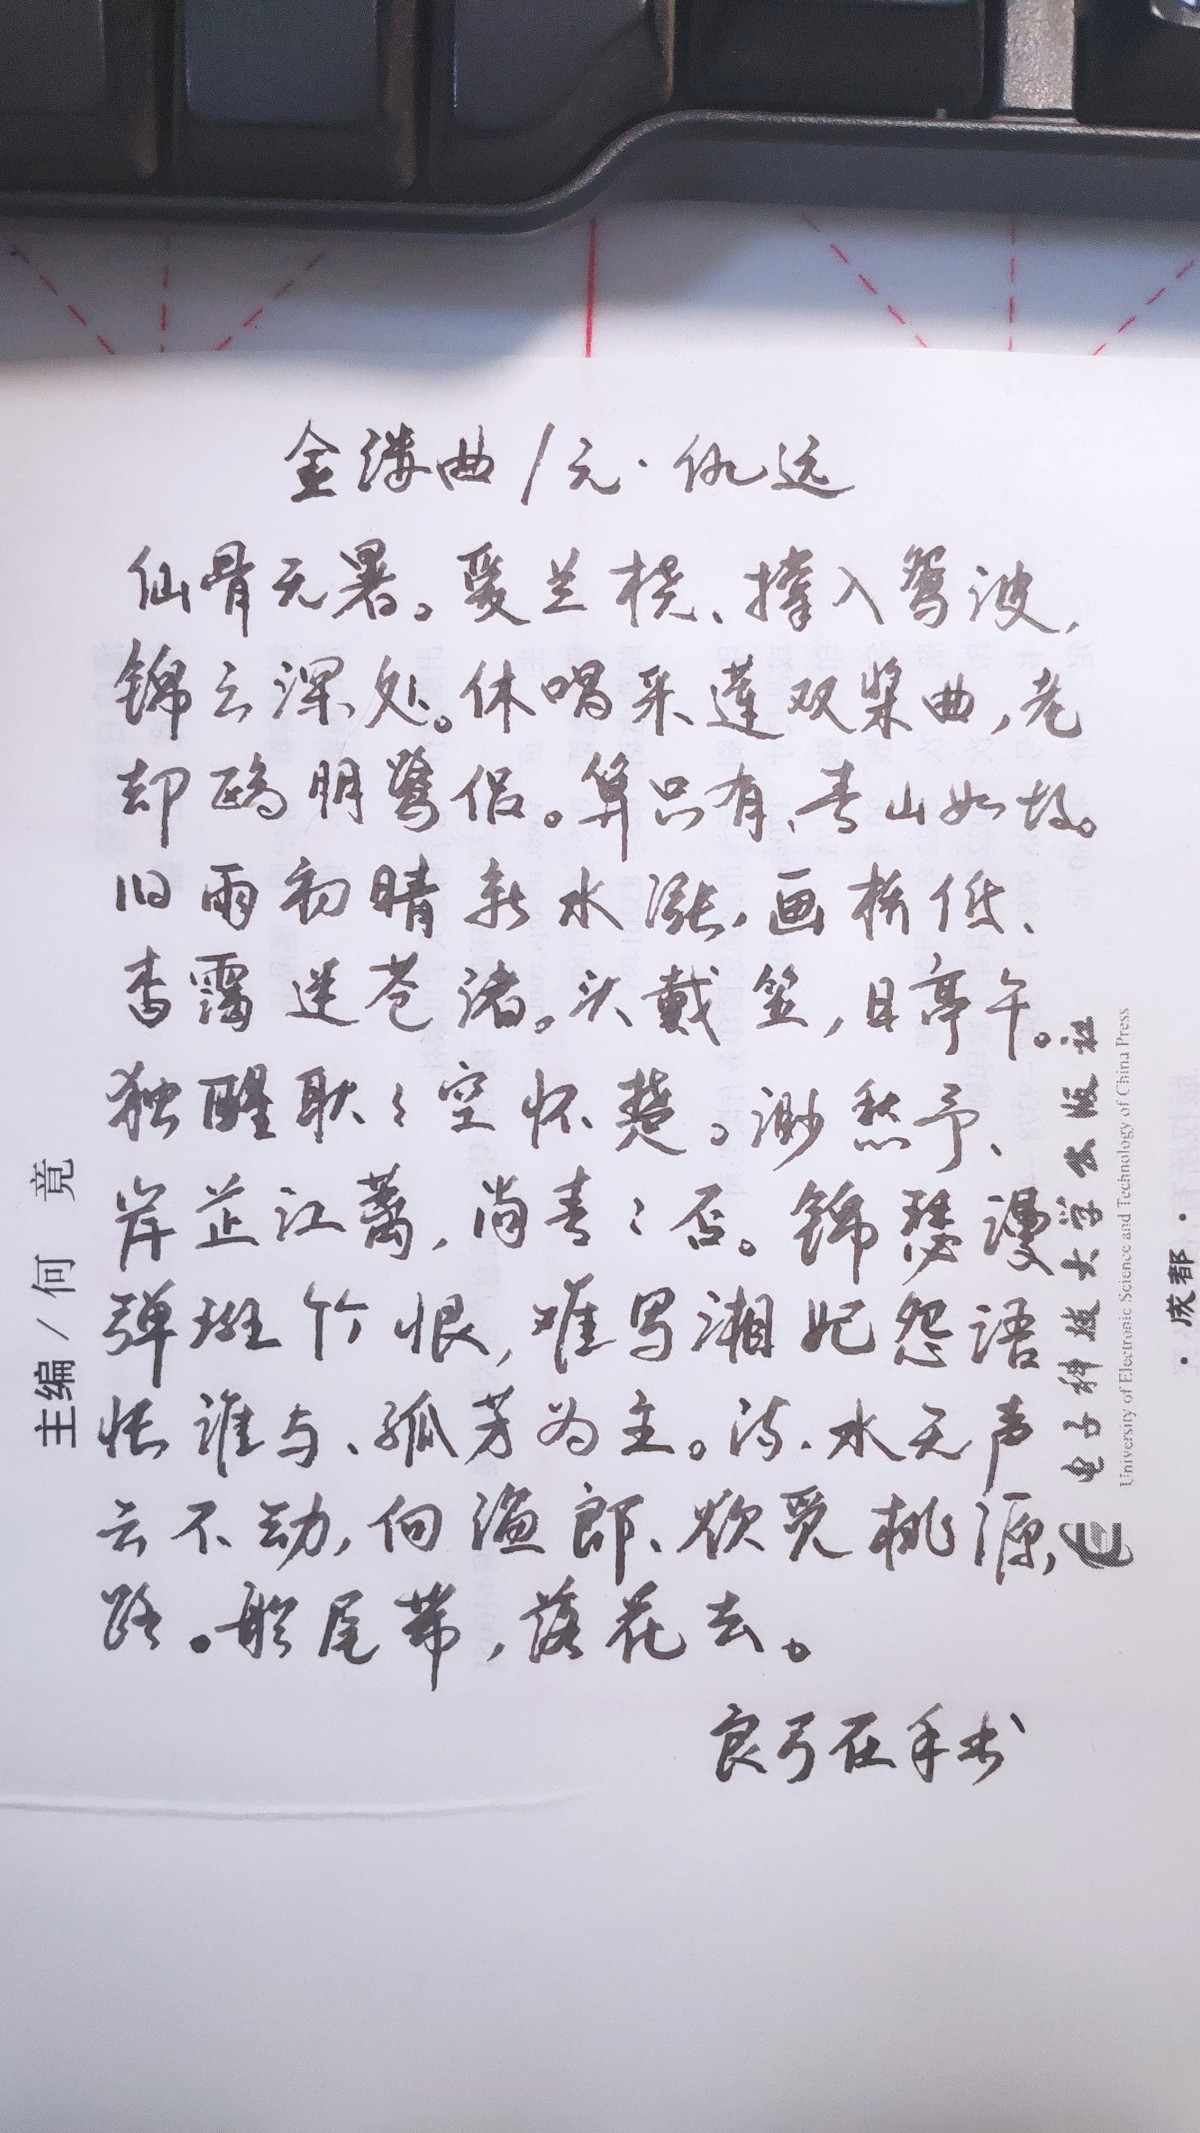 金缕曲/元·仇远
仙骨无暑。爱兰桡、撑入鸳波,
锦云深处。休唱采莲双桨曲,老
却鸥朋鹭侣。算只有、青山如故。
旧雨初晴新水涨,画桥低、
香霭迷苍渚。头戴笠,日亭午。
独醒耿〻空怀楚。渺愁予、
岸芷江蓠,尚青〻否。锦瑟漫
弹斑竹恨,难写湘妃怨语
怅谁与、孤芳为主。流水无声
云不动,向渔郎、欲觅桃源
路。船尾带,落花去。
良弓在手书
主编/何 竟
电子科技大学出版社
University of Electronic Science and Technology of China Press
·成都·